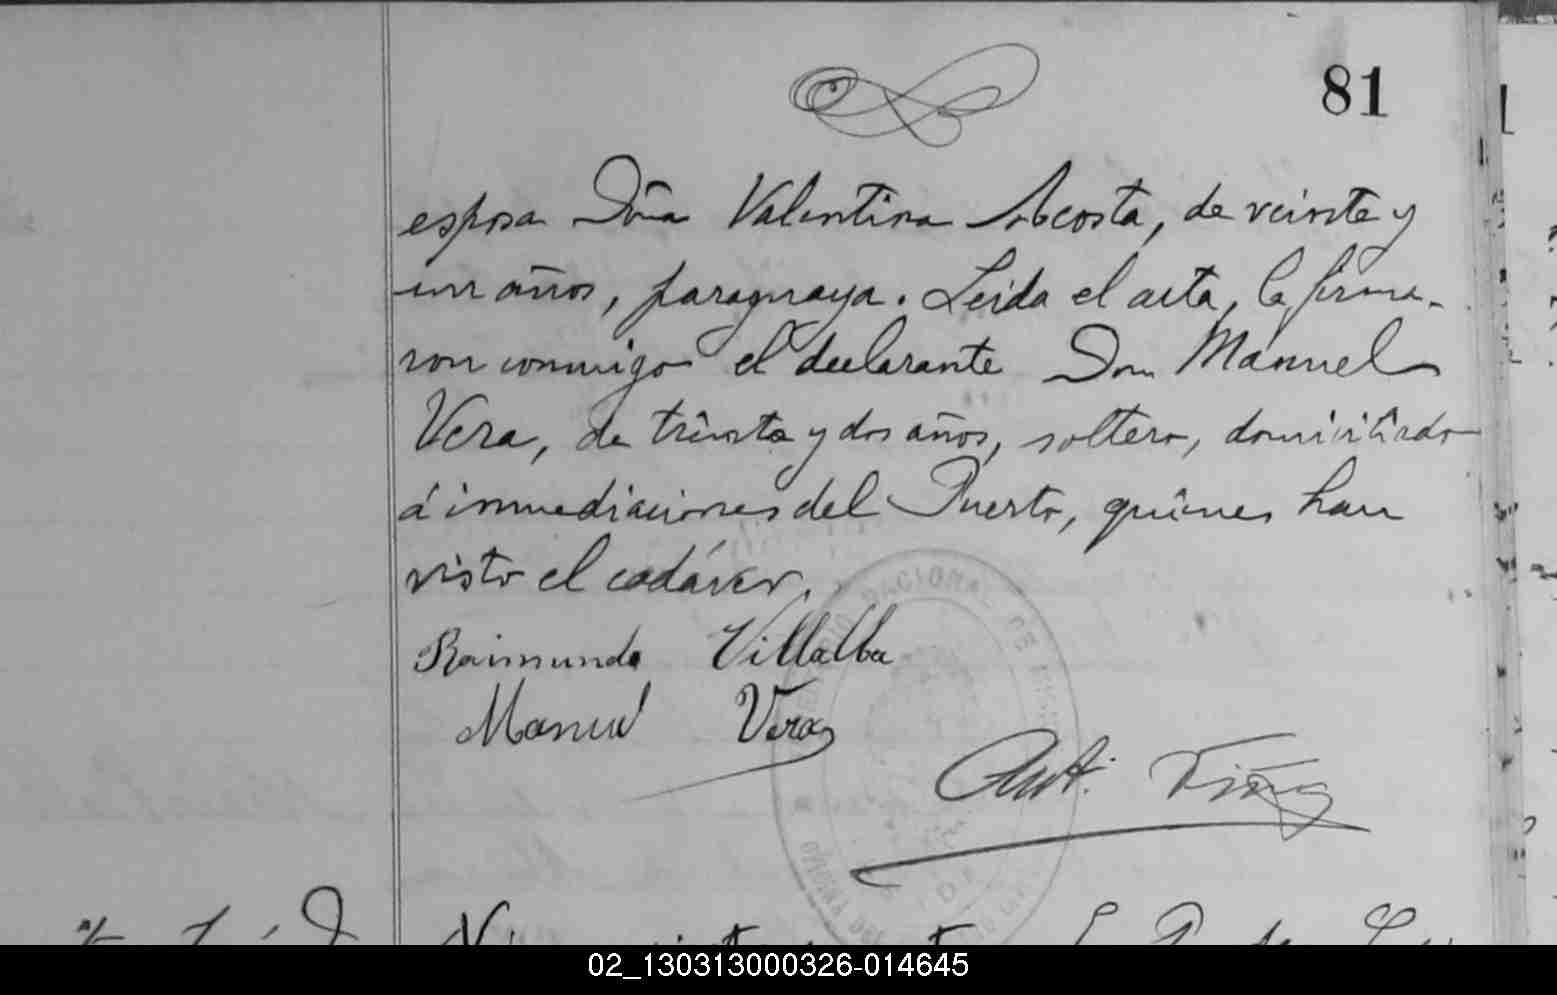 81
esposa Doña Valentina Acosta, de veinte y
un años, paraguaya. Leida el acta, la firma-
ron conmigo el declarante Don Manuel
Vera, de treinta y dos años, soltero, domiciliado
á inmediaciones del Puerto, quienes han
visto el cadáver.
Raimundo Villalba
Manuel Vera
Ant.
NACIONAL DE
02_130313000326-014645